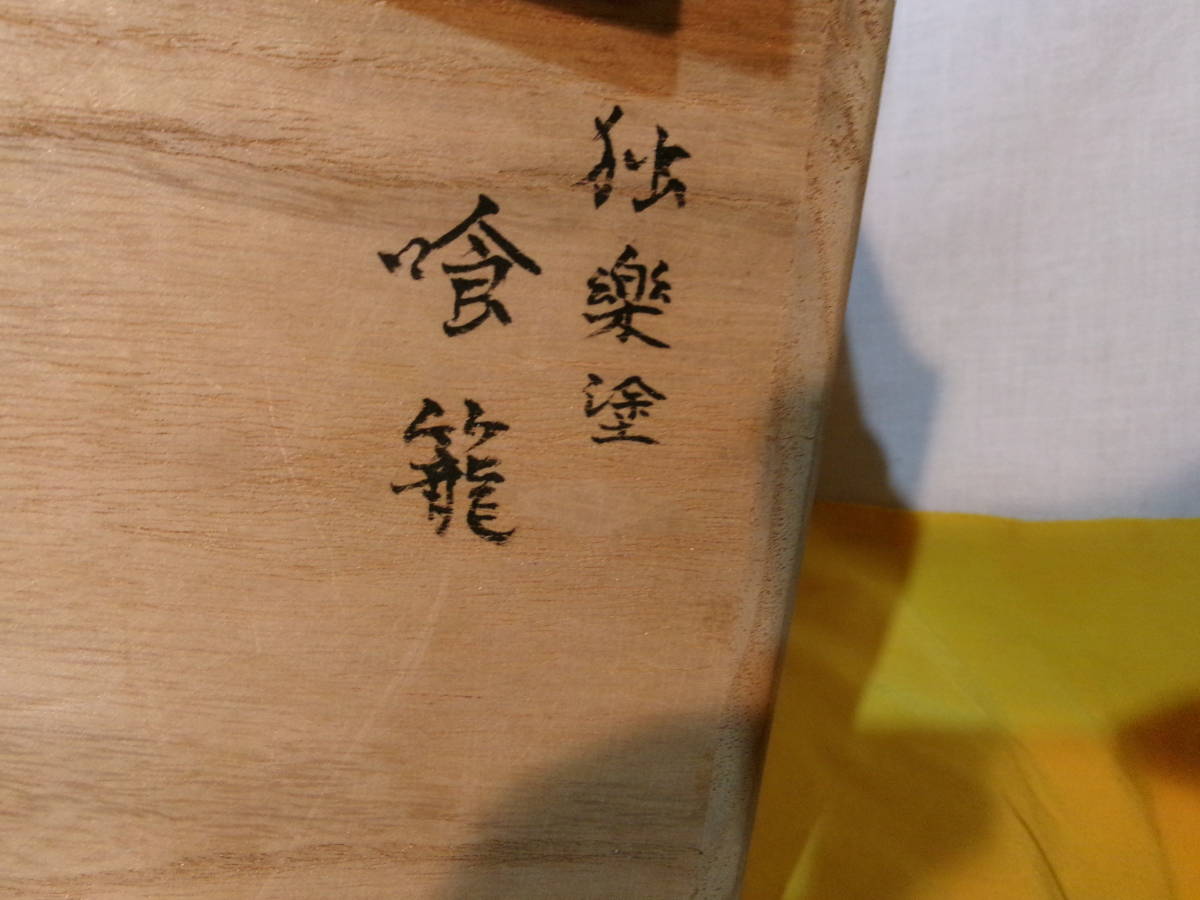 独樂塗
喰籠